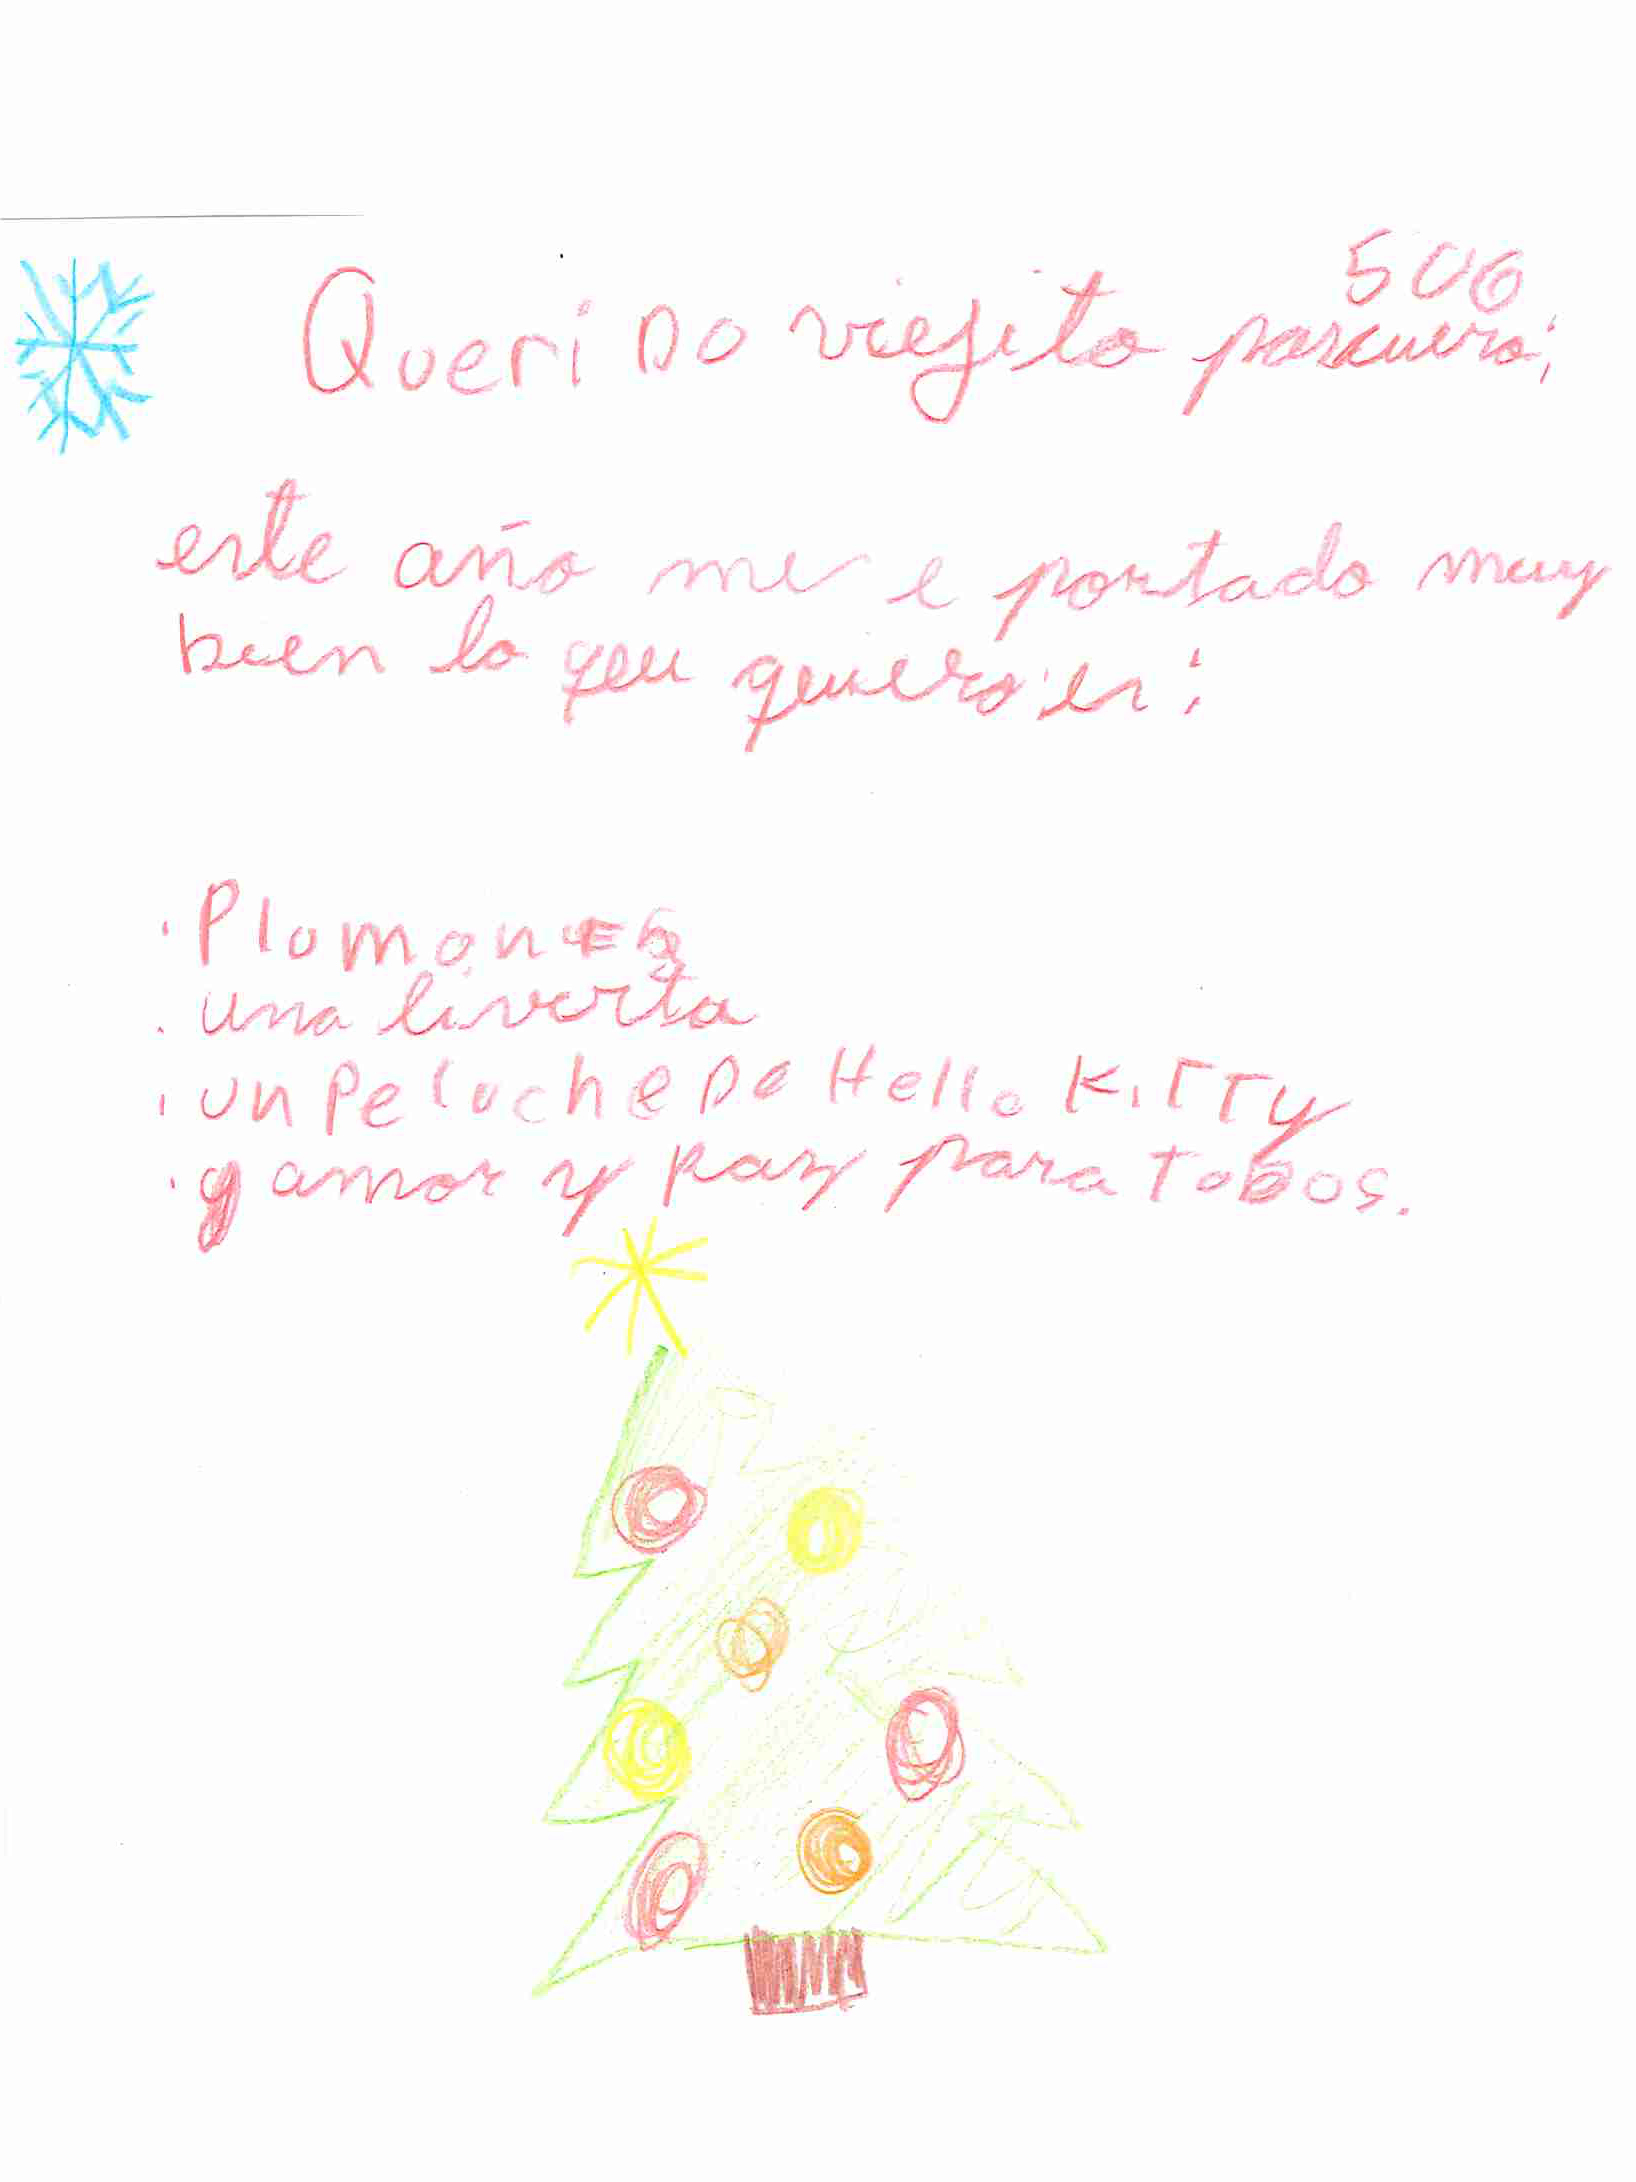 506
Querido viejito pascuero;
este año me e portado muy
bien lo qeu quiero es:
. Plumones
. una liverta
. un peluche De Hello KiTTy
. y amor y paz para toDos.